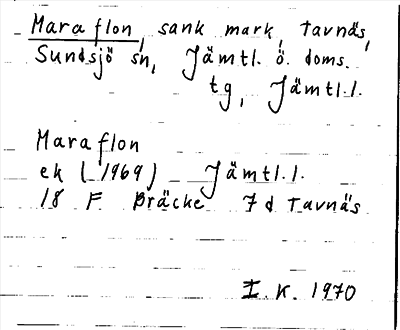 Maraflon, sank mark, Tavnäs,
Sundsjö sn, Jämtl. ö. doms.
tg, Jämtl.l.
Maraflon
ek (1969) Jämtl.l.
18 F Bräcke 7d Tavnäs
I.K. 1970